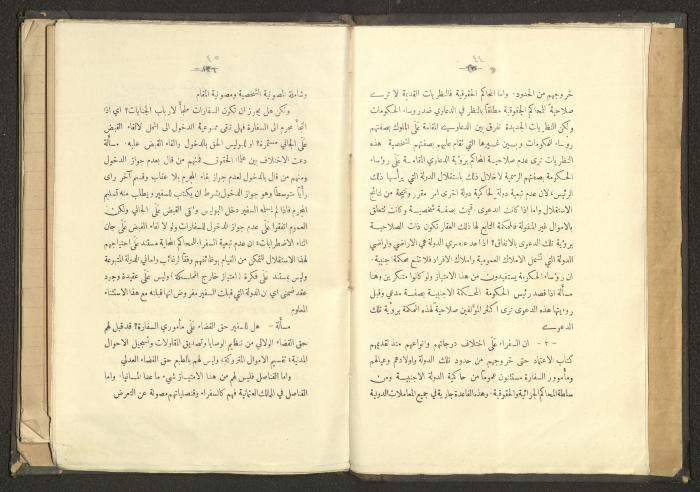 ٤٤
خروجهم من الحدود. واما المحاكم الحقوقية فالنظريات القديمة لا ترى
صلاحية للمحاكم الحقوقية مطلقاً بالنظر في الدعاوي ضد رؤساء الحكومات
ولكن النظريات الجديدة تفرق بين الدعاوي المقامة على الملوك بصفتهم
رؤساء الحكومات وبين غيرها التي تقام عليهم بصفتهم الشخصية هذه
النظريات ترى عدم صلاحية المحاكم برؤية الدعاوي المقامة على رؤساء
الحكومة بصفتهم الرسمية لاخلال ذلك باستقلال الدولة التي يرأسها ذلك
الرئيس، لان عدم تبعية دولة لحاكمية دولة اخرى امر مقرر ونتيجة من نتائج
الاستقلال واما اذا كانت الدعوى قد بصفته شخصية وكانت تتعلق
بالاموال غير المنقولة فالمحكمة التابع لها ذلك العقار تكون ذات الصلاحية
برؤية تلك الدعوى بالاتفاق؟ اذ احد عد مرمي الدولة هي الاراضي واراضي
الدولة التي تشمل الاملاك العمومية واملاك الافراد فلا تقع محكمة جنبية.
ان رؤساء الحكومة يستفيدون من هذا الامتياز ولو كانوا متنكرين وهنا
مسألة اذا قصد رئيس الحكومة المحكمة الاجنبية بصفة مدعي وقبل
رؤيتها هذه الدعوى ترى اكثر المؤلفين صلاحية لهذه المحكمة برؤية تلك
الدعوى
– ٢ – ان السفراء على اختلاف درجاتهم وانواعهم منذ تقديمهم
كتاب الاعتماد حتى خروجهم من حدود تلك الدولة واولادهم وعيالهم
ومأمورو السفارة مستثنون عموماً من حاكمية الدولة الاجنبية ومن
سلطة المحاكم الجزائية والحقوقية. وهذه القاعدة جارية في جميع المعاملات الدولية
٤٥
وشاملة المصونية الشخصية ومصونية المقام
ولكن هل يجوز ان تكون السفارات ملجأ لارباب الجنايات؟ اي اذا
التجأ مجرم الى السفارة فهل تبقى ممنوعية الدخول الى المحل لالقاء القبض
على الجاني مستمرة؟ او للبوليس الحق بالدخول والقاء القبض عليه. مسألة
دعت الاختلاف بين علماء الحقوق فمنهم من قال بعدم جواز الدخول
ومنهم من قال بالدخول لعدم جواز بقاء المجرم بلا عقاب وقسم آخر رأى
رأياً متوسطاً وهو جواز الدخول بشرط ان يكتب للسفير ويطلب منه تسليم
المجرم فاذا لم يسلمه السفير دخل البوليس والقى القبض على الجاني ولكن
العموم اتفقوا على عدم جواز الدخول للسفارات ولو لالقاء القبض على جان
اثناء الاضطرابات؛ ان عدم تبعية السفراء للمحاكم المحلية مستند على احتياجهم
لهذا الاستقلال لتمكن من القيام بوظائفهم وفقاً لرغائب واماني الدولة المتبوعة
وليس يستند على فكرة (امتياز خارج المملكة) وليس على عقيدة وجود
عقد ضمني اي ان الدولة التي قبلت السفير مفروض انها قبلته مع هذا الاستثناء
المعلوم
مسألة – هل للسفير حق القضاء على مأموري السفارة؟ قد قبل لهم
حق القضاء الولائي من تنظيم الوصايا وتصديق المقاولات وتسجيل الاحوال
المدنية، تقسيم الاموال المتروكة، وليس لهم بالطبع حق القضاء العدلي
واما القناصل فليس لهم من هذا الامتياز شيء ما عدا المسانيا. واما
القناصل في الممالك العثمانية فهم كالسفراء وقنصلياتهم مصونة عن التعرض